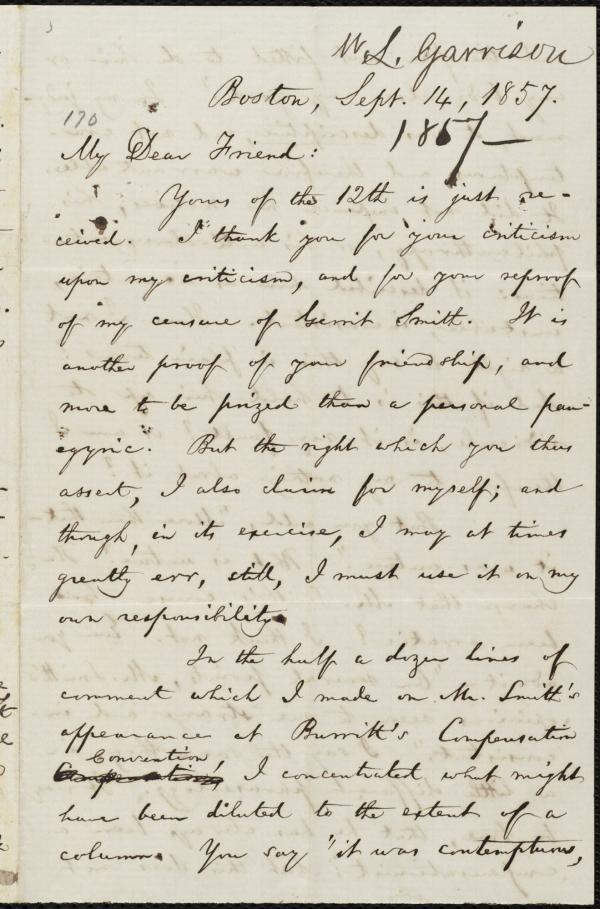 W. L. Garrison
Boston, Sept. 14, 1857.
170
1857—
My Dear Friend:
Yours of the 12th is just re-
ceived. I thank you for your criticism
upon my criticism, and for your reproof
of my censure of Gerrit Smith. It is
another proof of your friendship, and
more to be prized than a personal pan-
egyric. But the right which you thus
assert, I also claim for myself; and
though, in its exercise, I may at times
greatly err, still, I must use it on my
own responsibility.
In the half a dozen lines of
comment which I made on Mr. Smith's
appearance at Burritt's Compensation
Convention,
Compensation, I concentrated what might
have been diluted to the extent of a
column. You say "it was contemptuous,